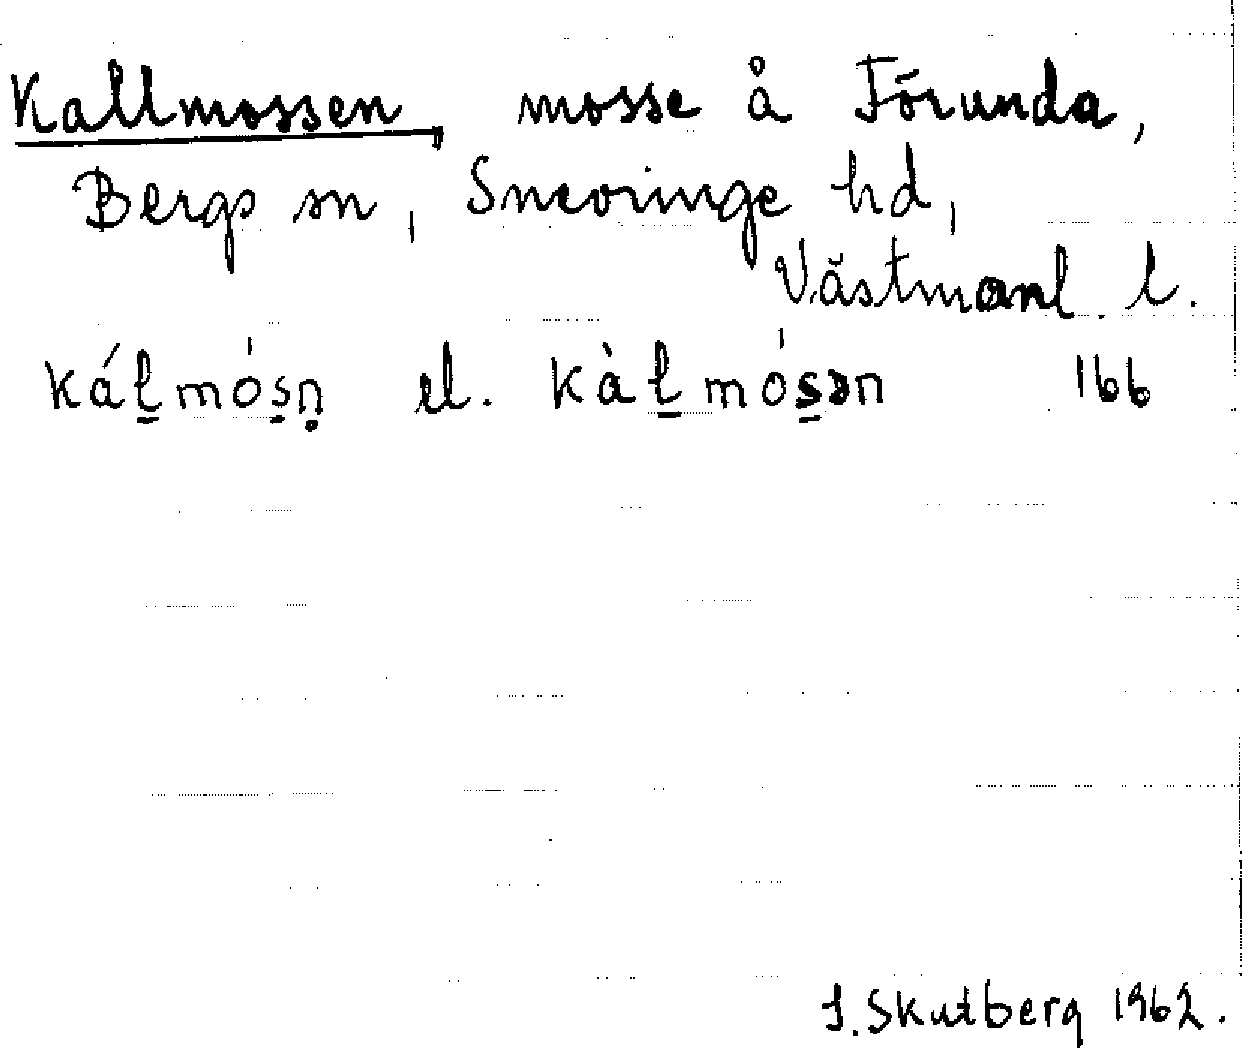 Kallmossen, mosse å Förunda,
Bergs sn, Snevringe hd,
Västmanl. l.
káḻmósṇ el. kàḻmósən 166
J. Skutberg 1962.